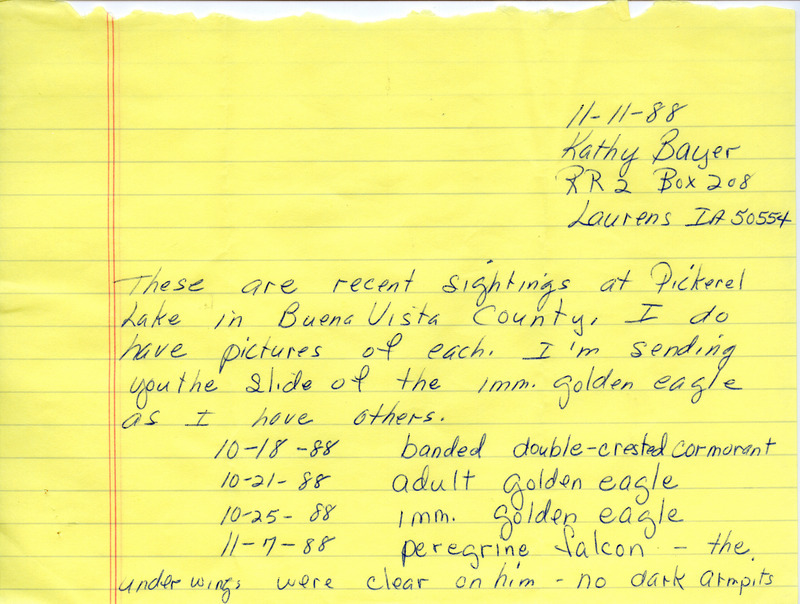 11-11-88
Kathy Bayer
RR2 Box 208
Laurens IA 50554
These are recent sightings at Pickerel
Lake in Buena Vista County. I do
have pictures of each. I'm sending
you the slide of the imm. golden eagle
as I have others.
10-18-88 banded double-crested cormorant
10-21-88 adult golden eagle
10-25-88 imm. golden eagle
11-7-88 peregrine falcon - the
underwings were clear on him - no dark armpits